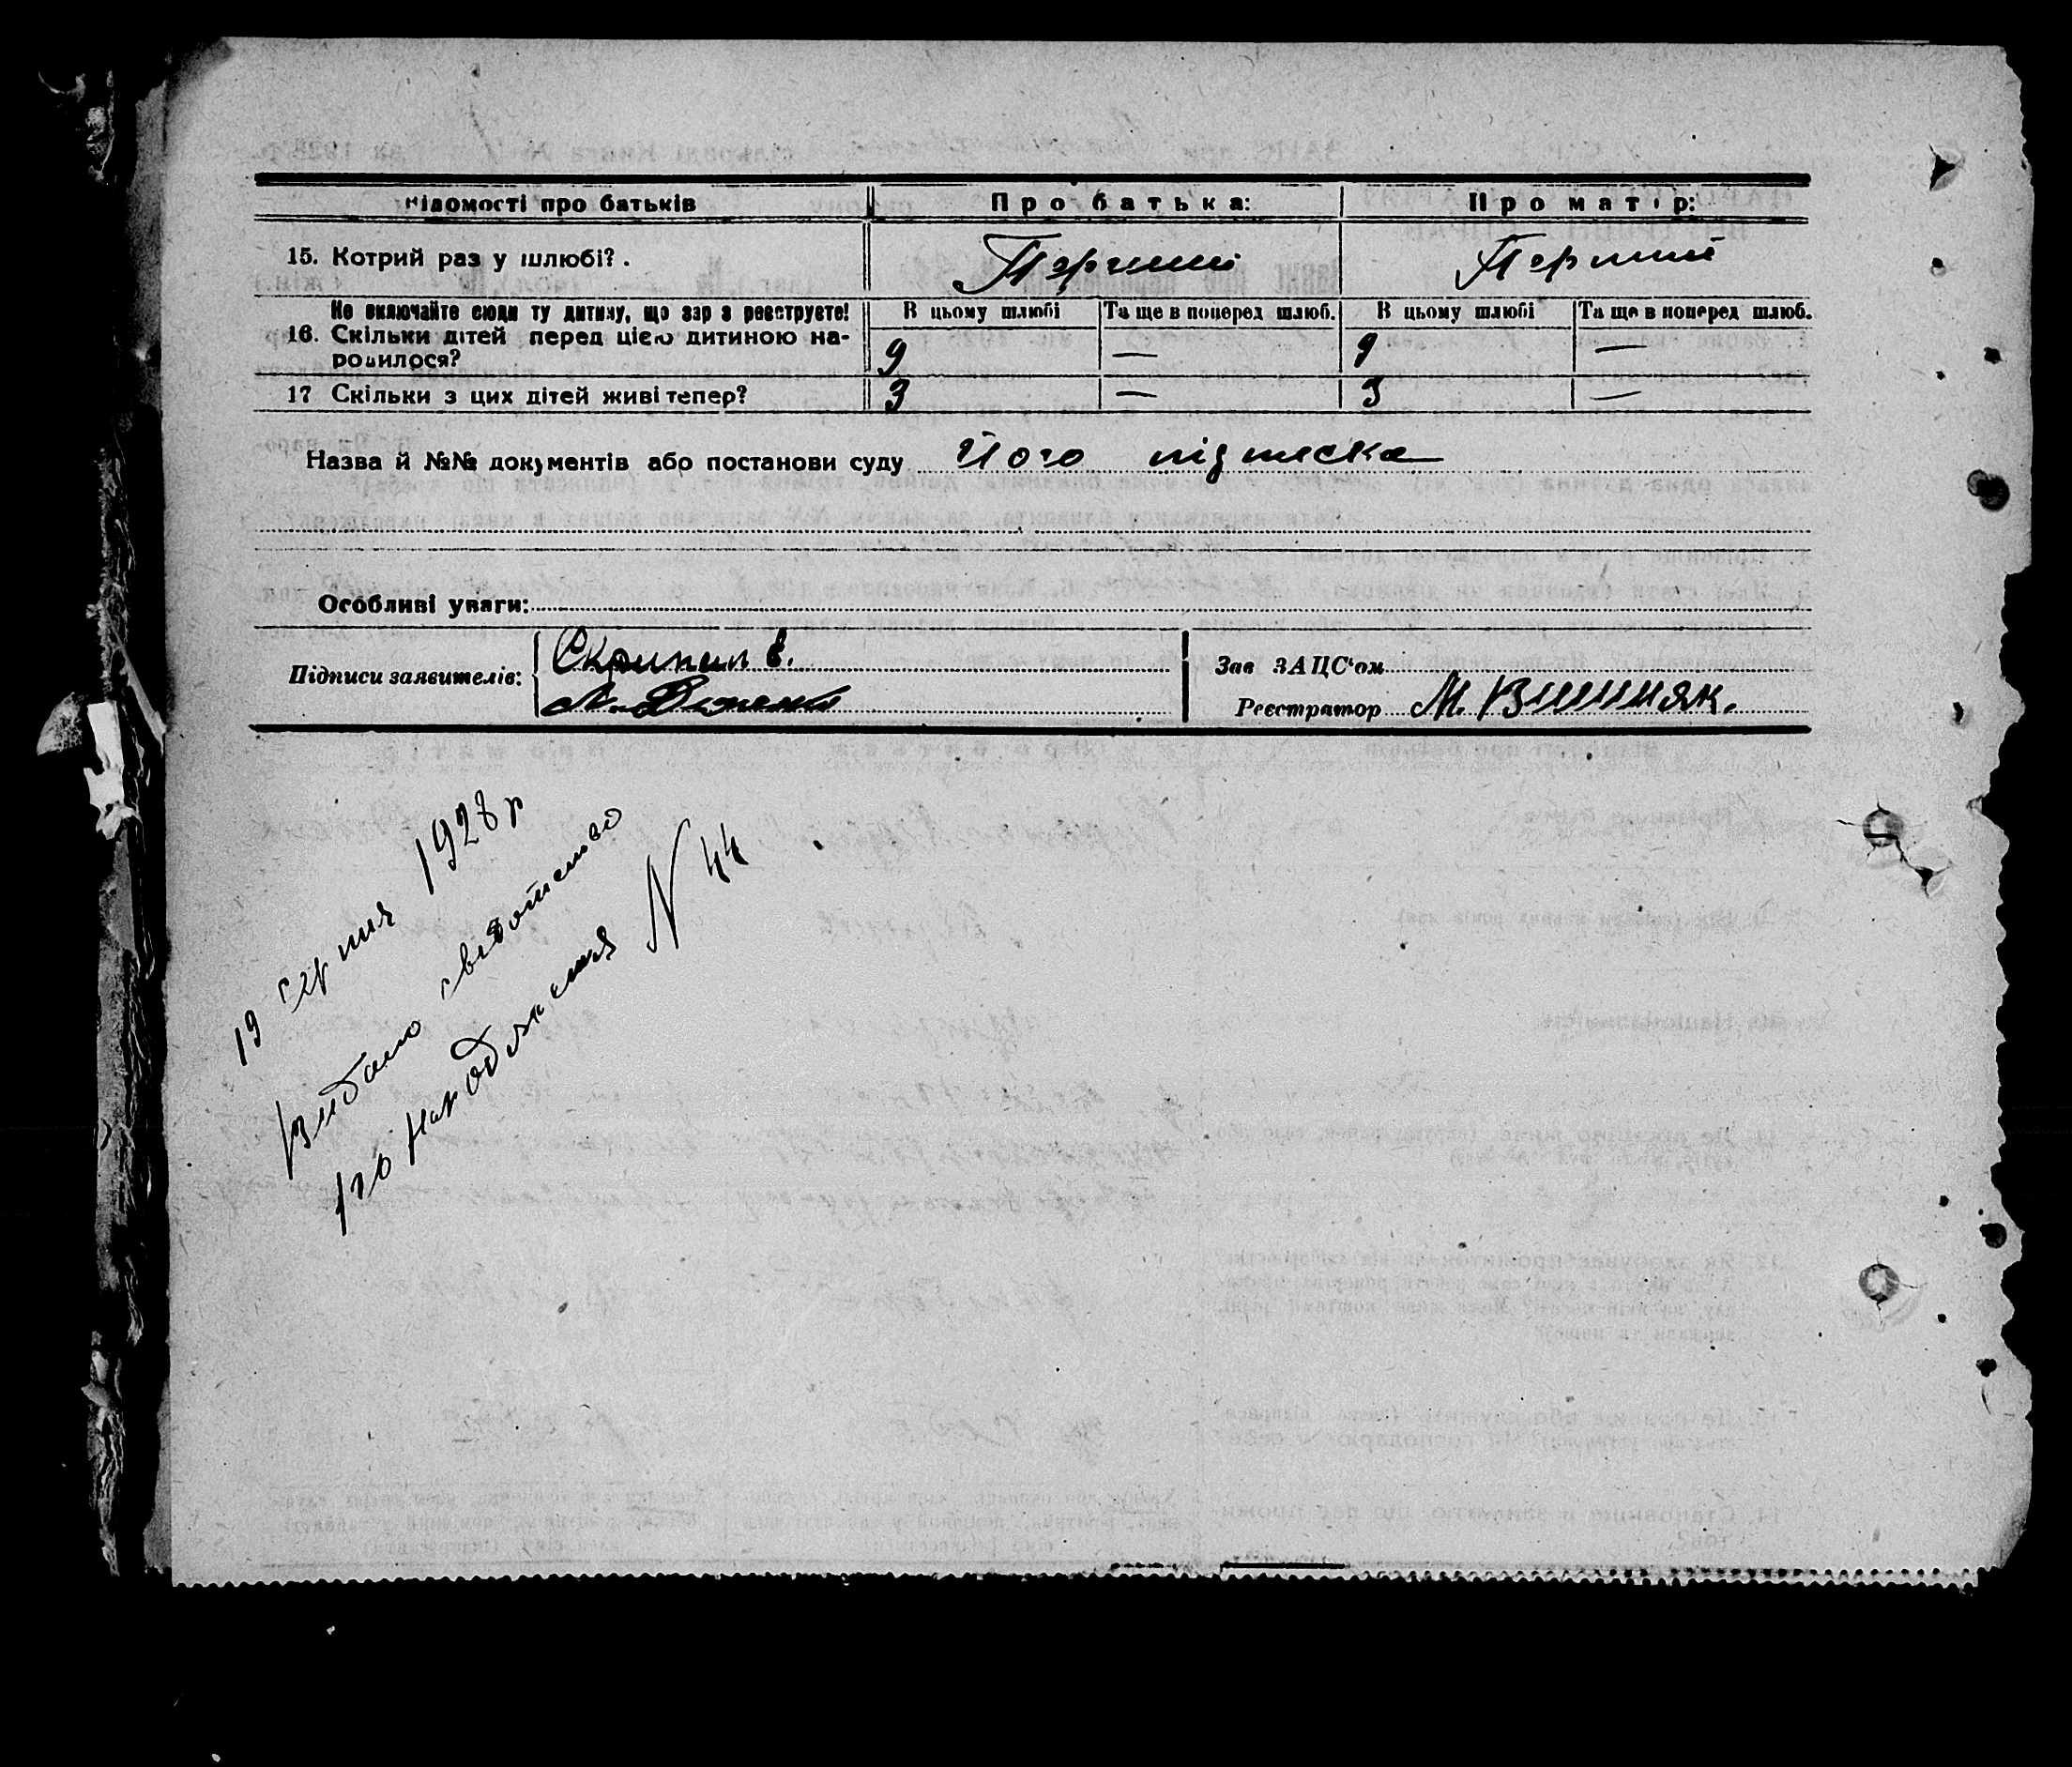 Відомості про батьків Про батька: Про матір:
15. Котрий раз у шлюбі? . Перший Перший
Не включайте сюди ту дитину, що зараз реєструєте! В цьому шлюбі Та ще в поперед шлюб. В цьому шлюбі Та ще в поперед шлюб.
16. Скільки дітей перед цією дитиною на-
родилося? 9 — 9 —
17 Скільки з цих дітей живі тепер? 3 — 3 —
Назва й №№ документів або постанови суду Його підписка
Особливі уваги:
Підписи заявителів: Скрипал Є. Зав ЗАЦС'ом
Реєстратор М. Вишняк.
19 серпня 1928 р
Видано свідотство
про народження N 44